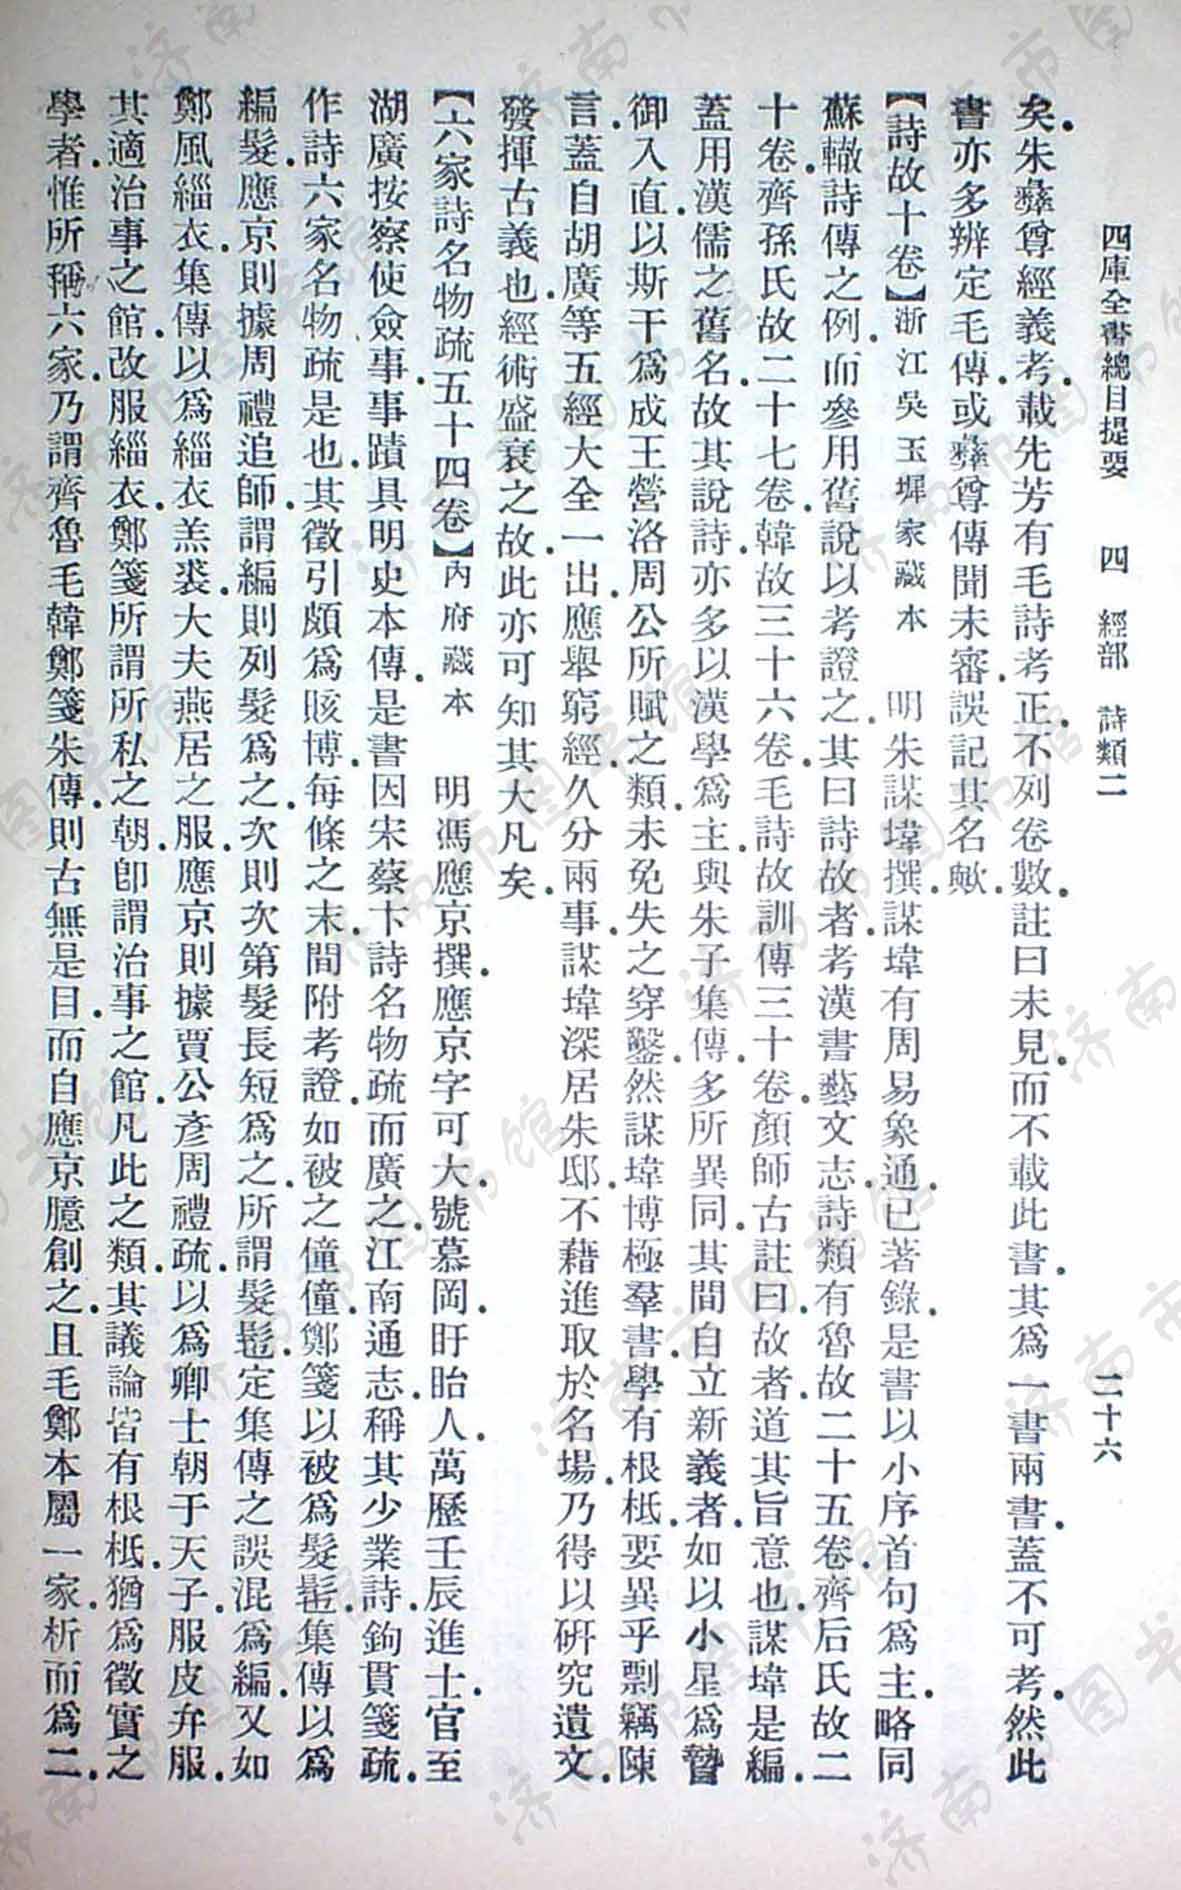 四庫全書總目提要 四 經部 詩類二 二十六
矣.朱彝尊經義考.載先芳有毛詩考正.不列卷數.註曰未見.而不載此書.其爲一書兩書.蓋不可考.然此
書亦多辨定毛傳.或彝尊傳聞未審.誤記其名歟.
【詩故十卷】浙江吳玉墀家藏本 明朱謀㙔撰.謀㙔有周易象通.已著錄.是書以小序首句爲主.略同
蘇轍詩傳之例.而參用舊說以考證之.其曰詩故者.考漢書藝文志.詩類有魯故二十五卷.齊后氏故二
十卷.齊孫氏故二十七卷.韓故三十六卷.毛詩故訓傳三十卷.顏師古註曰.故者.道其旨意也.謀㙔是編.
蓋用漢儒之舊名.故其說詩.亦多以漢學爲主.與朱子集傳.多所異同.其間自立新義者.如以小星爲暬
御入直.以斯干爲成王營洛周公所賦之類.未免失之穿鑿.然謀㙔博極羣書.學有根柢.要異乎剽竊陳
言.蓋自胡廣等五經大全一出.應舉窮經.久分兩事.謀㙔深居朱邸.不藉進取於名場.乃得以硏究遺文.
發揮古義也.經術盛衰之故.此亦可知其大凡矣.
【六家詩名物疏五十四卷】內府藏本 明馮應京撰.應京字可大.號慕岡.盱眙人.萬歷壬辰進士.官至
湖廣按察使僉事.事蹟具明史本傳.是書因宋蔡卞詩名物疏而廣之.江南通志.稱其少業詩.鉤貫箋疏.
作詩六家名物疏是也.其徵引頗爲賅博.每條之末.間附考證.如被之僮僮.鄭箋以被爲髮髢.集傳以爲
編髮.應京則據周禮追師.謂編則列髮爲之.次則次第髮長短爲之.所謂髮髢.定集傳之誤混爲編.又如
鄭風緇衣.集傳以爲緇衣羔裘.大夫燕居之服.應京則據賈公彥周禮疏.以爲卿士朝于天子.服皮弁服.
其適治事之館.改服緇衣.鄭箋所謂所私之朝.卽謂治事之館.凡此之類.其議論皆有根柢.猶爲徵實之
學者.惟所稱六家.乃謂齊魯毛韓鄭箋朱傳.則古無是目.而自應京臆創之.且毛鄭本屬一家.析而爲二.